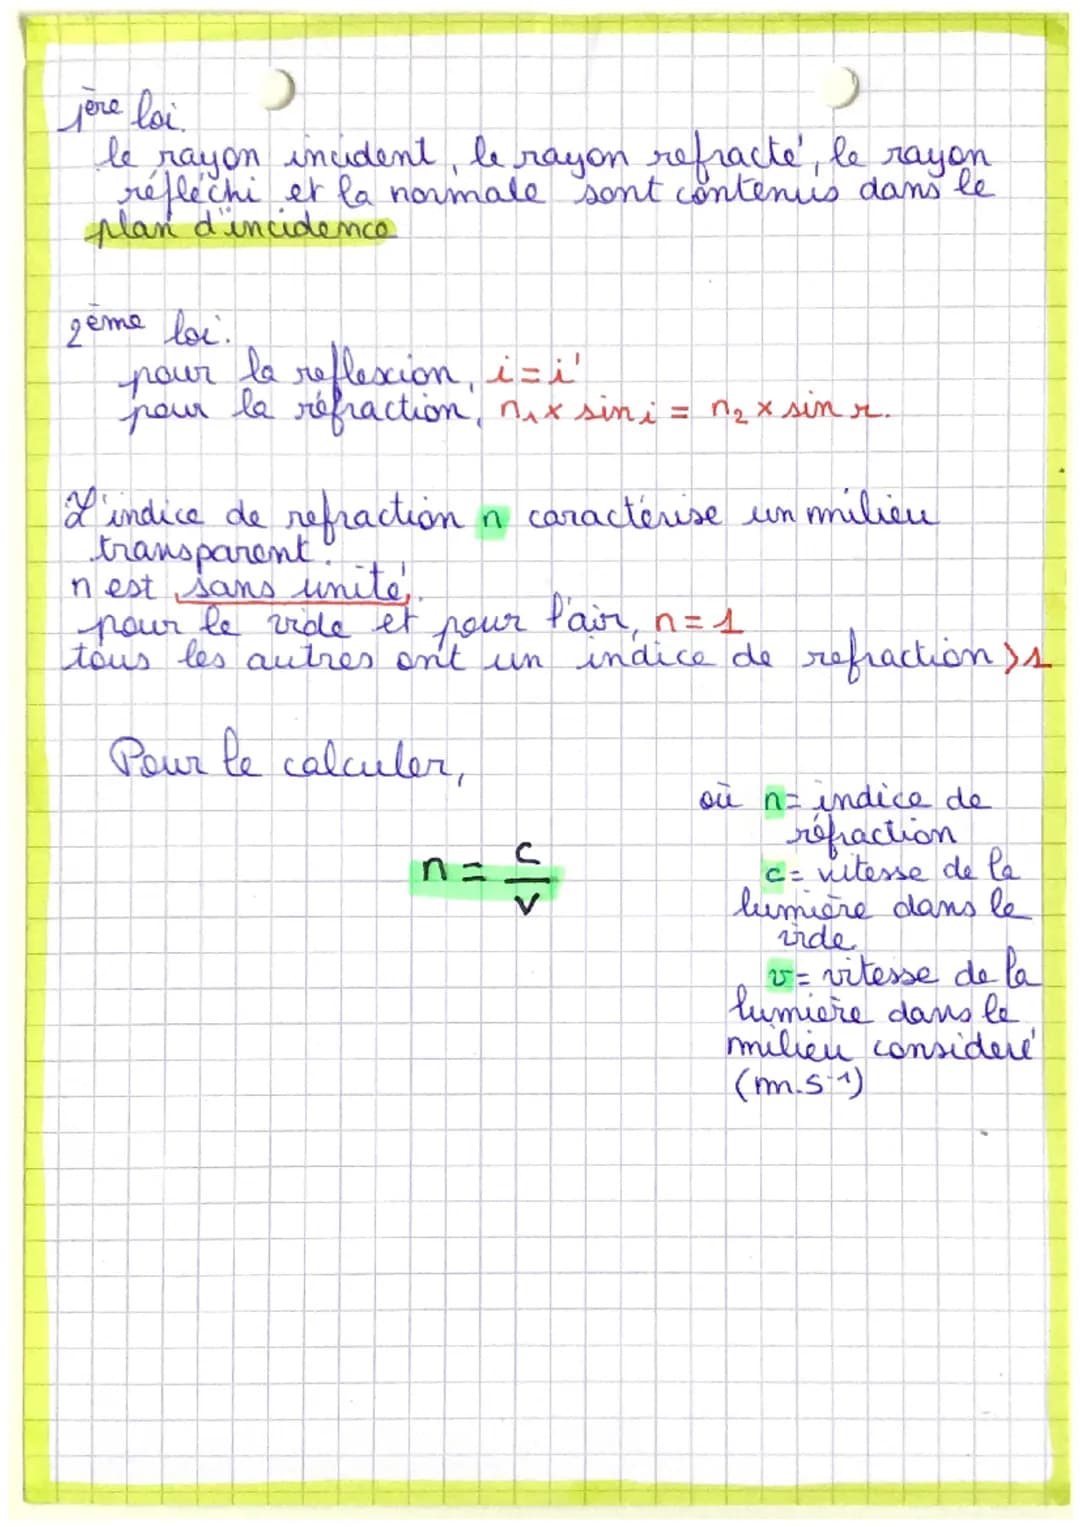 1ère loi.
le rayon incident, le rayon refracté, le rayon
réfléchi et la normale sont contenus dans le
plan d'incidence
2ème loi.
pour la reflexion, i = i'
pour la réfraction, n₁ x sin i = n₂ x sin r.
L'indice de refraction n caractérise un milieu
transparent.
n est sans unité.
pour le vide et pour l'air, n = 1
tous les autres ont un indice de refraction >1
Pour le calculer,
n = c/v
où n = indice de
réfraction
c = vitesse de la
lumière dans le
vide
v = vitesse de la
lumière dans le
milieu consideré
(m.s-1)